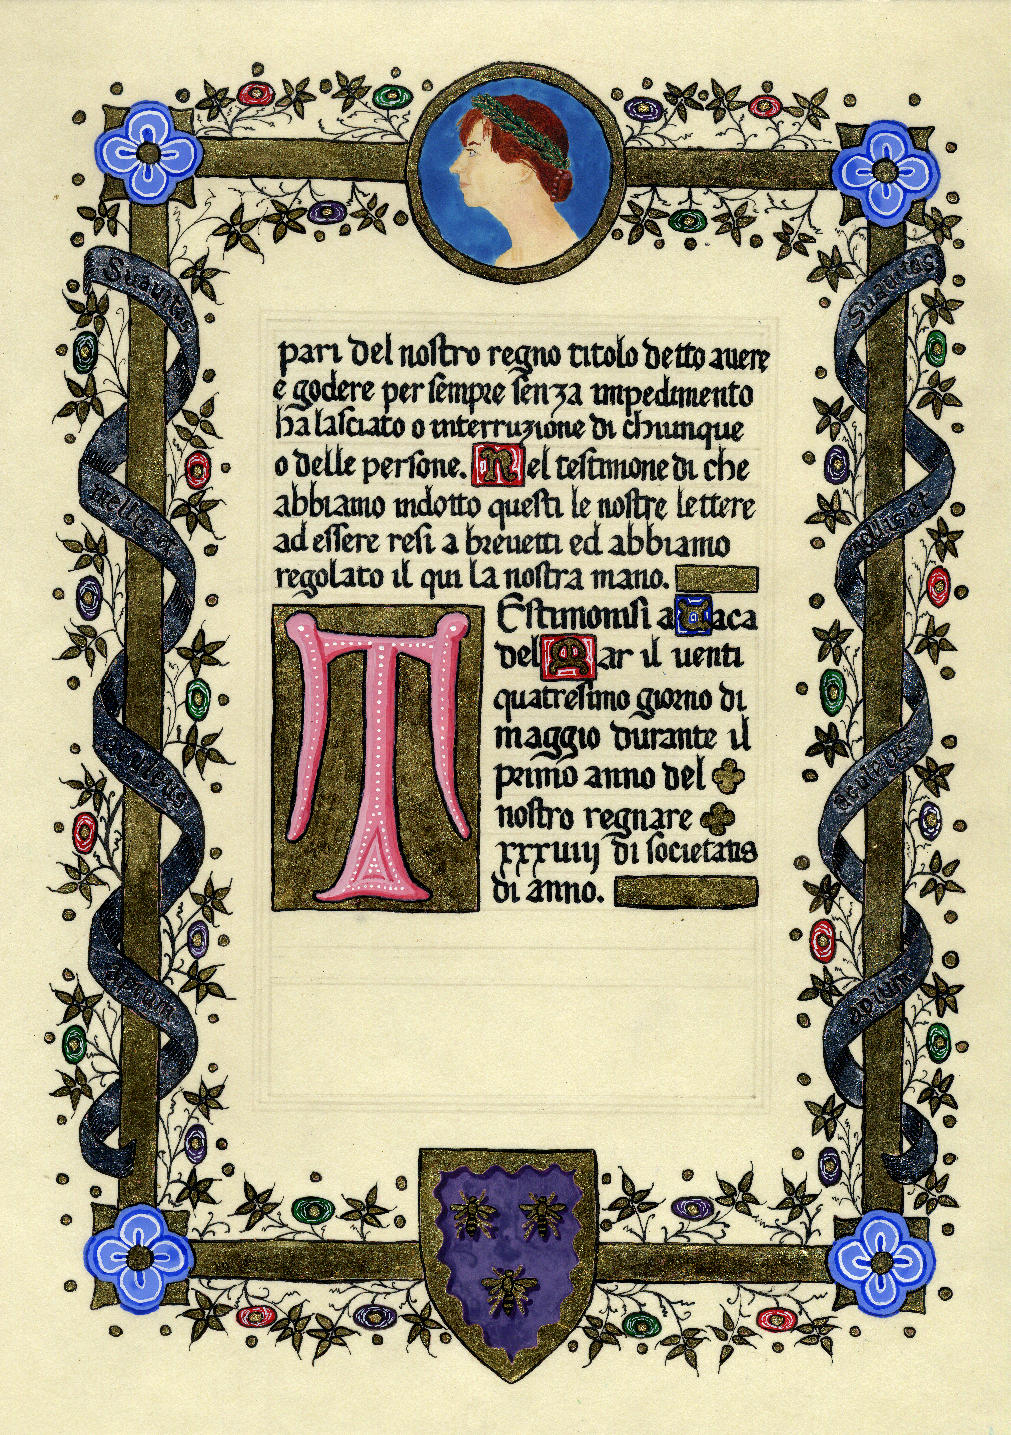 Suavitas
mellis et
aculeus
apium
pari del nostro regno titolo detto avere
e godere per sempre senza impedimento
ha lasciato o interruzione di chiunque
o delle persone. Nel testimone di che
abbiamo indotto questi le nostre lettere
ad essere resi a brevetti ed abbiamo
regolato il qui la nostra mano.
T Estimonisi a aca
del Mar il venti
quatresimo giorno di
maggio durante il
primo anno del
nostro regnare
xxxviiij di societatis
di anno.
Suavitas
mellis et
aculeus
apium